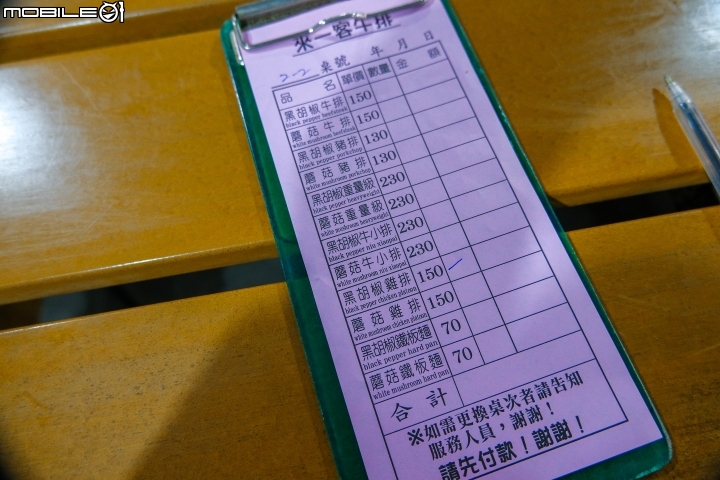 MOBILE01
來一客牛排
22 桌號 年 月 日
品 名 單價 數量 金 額
黑胡椒牛排 150
black pepper beefsteak
蘑菇牛排 150
white mushroom beefsteak
黑胡椒豬排 130
black pepper porkchop
蘑菇豬排 130
white mushroom porkchop
黑胡椒重量級 230
black pepper heavyweight
蘑菇重量級 230
white mushroom heavyweight
黑胡椒牛小排 230
black pepper niu xiaopai
蘑菇牛小排 230
white mushroom niu xiaopai
黑胡椒雞排 150
black pepper chicken platoon
蘑菇雞排 150
white mushroom chicken platoon
黑胡椒鐵板麵 70
black pepper hard pan
蘑菇鐵板麵 70
white mushroom hard pan
合計
※如需更換桌次者請告知
服務人員,謝謝!
請先付款!謝謝!